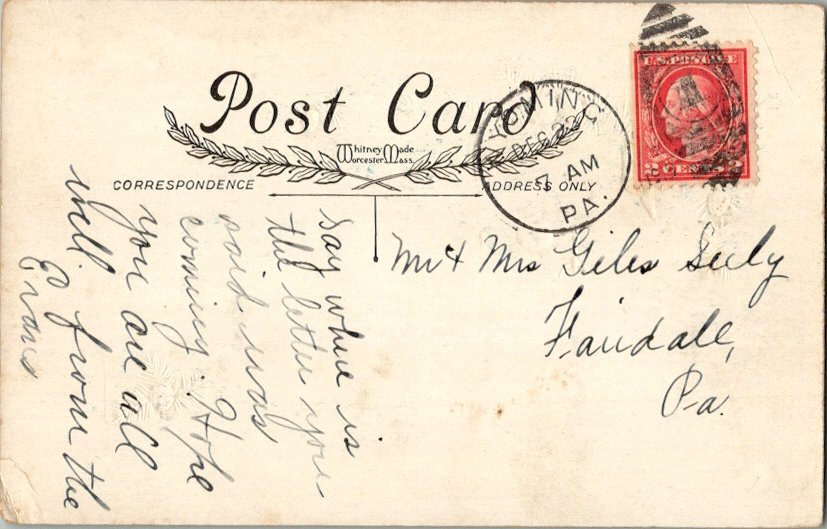 Post Card
Whitney Made
Worcester Mass.
CORRESPONDENCE
ADDRESS ONLY
OMING
DEC 22
7 AM
PA.
U.S. POSTAGE
2 CENTS 2
say where is
the letter you
said was
coming. Hope
you are all
well from the
Evans
Mr & Mrs Giles Seely
Fairdale,
Pa.